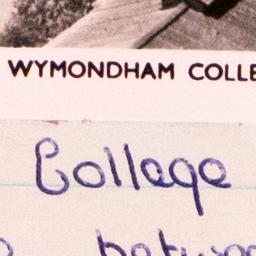 WYMONDHAM COLLE
College